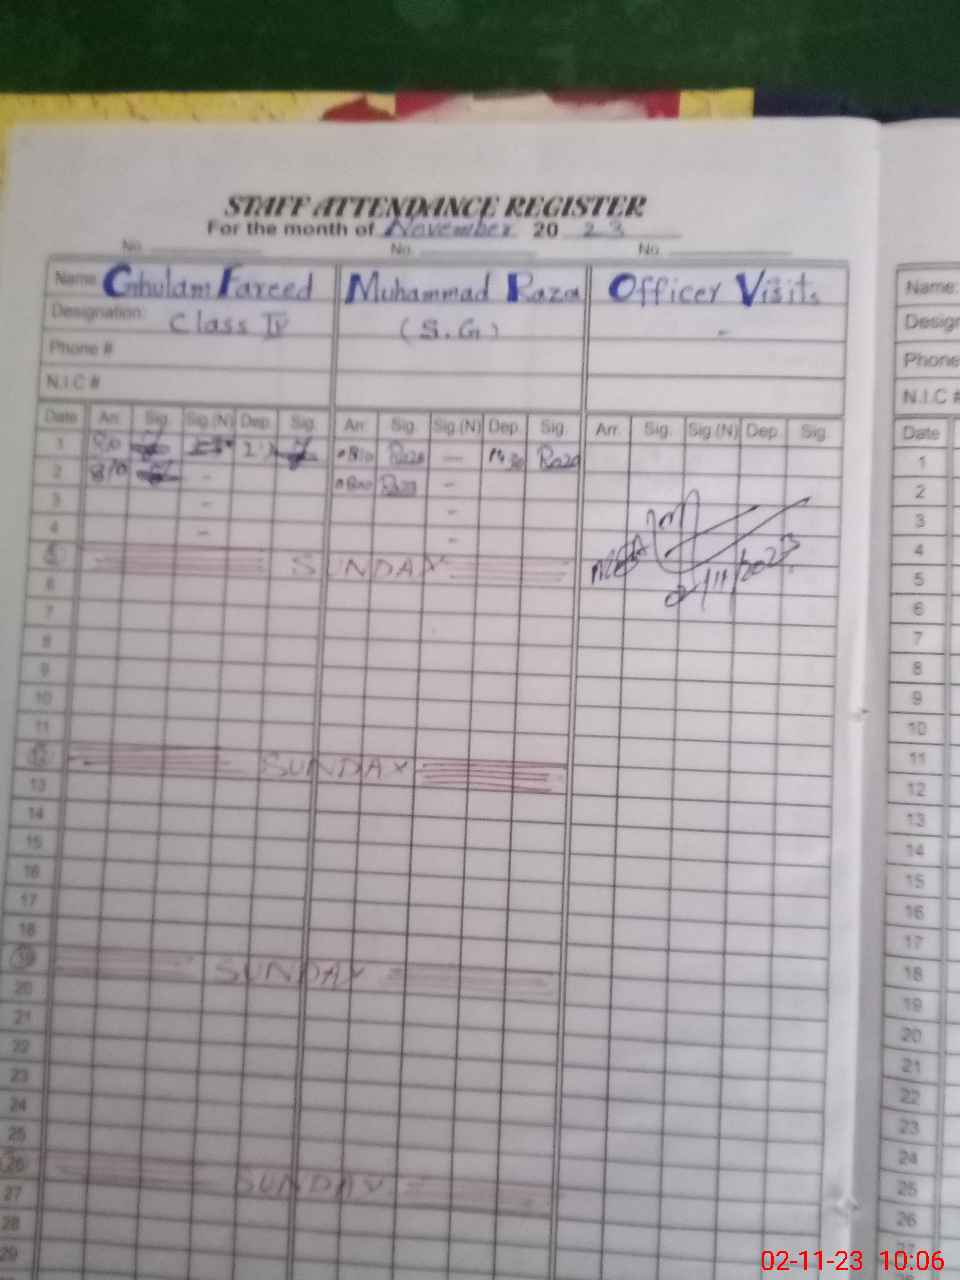 STAFF ATTENDANCE REGISTER
For the month of November 2023
No. No. No.
Name: Ghulam Fareed Muhammad Raza Officer Visits Name:
Designation: Class IV (S.G) - Desig
Phone # Phone
N.I.C # N.I.C #
Date Arr. Sig. Sig.(N) Dep. Sig. Arr. Sig. Sig.(N) Dep. Sig. Arr. Sig. Sig.(N) Dep. Sig. Date
1 810 0810 Raza — Raza 1
2 - Raza - 2
3 - - 3
4 - - 4
5 SUNDAY 02/11/2023 5
6 6
7 7
8 8
9 9
10 10
11 11
12 SUNDAY 12
13 13
14 14
15 15
16 16
17 17
18 18
19 SUNDAY 19
20 20
21 21
22 22
23 23
24 24
25 25
26 SUNDAY 26
27 27
28
29
02-11-23 10:06